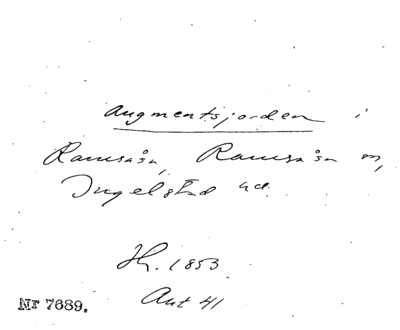 Augmentsjorden i
Ramsåsa, Ramsåsa sn,
Ingelstad hd.
Hr. 1853
Ant 41
Nr 7689.